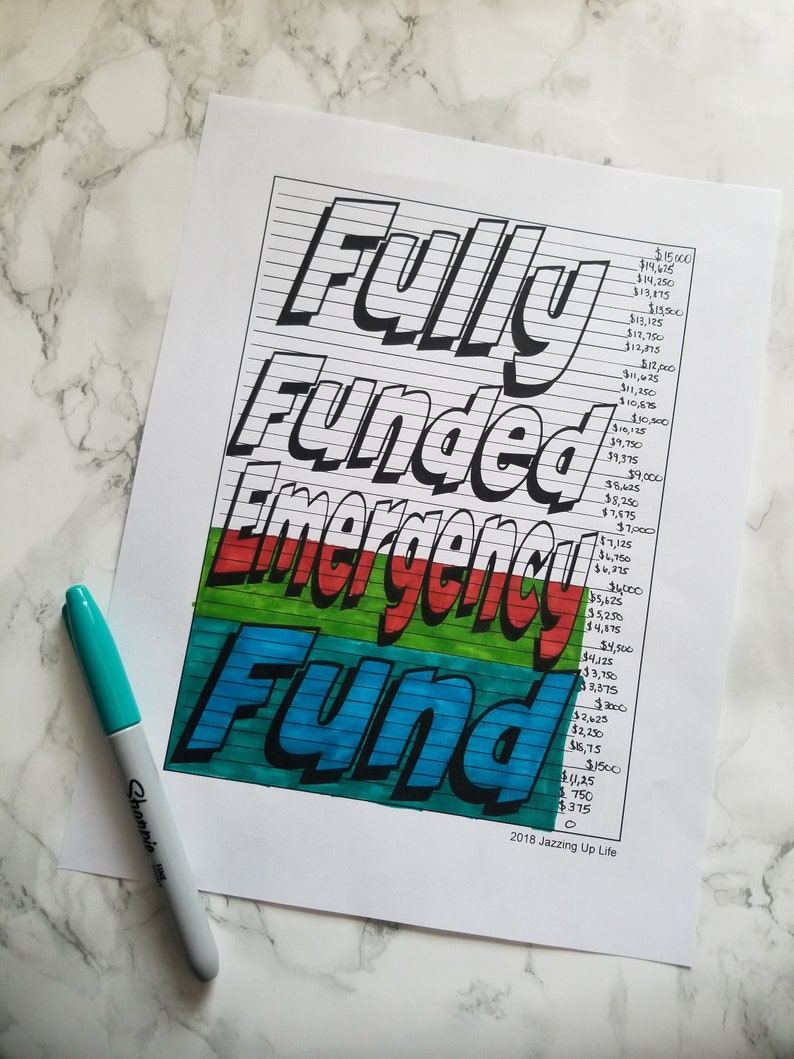 Fully
Funded
Emergency
Fund
$15,000
$14,625
$14,250
$13,875
$13,500
$13,125
$12,750
$12,375
$12,000
$11,625
$11,250
$10,875
$10,500
$10,125
$9,750
$9,375
$9,000
$8,625
$8,250
$7,875
$7,000
$7,125
$6,750
$6,375
$6,000
$5,625
$5,250
$4,875
$4,500
$4,125
$3,750
$3,375
$3000
$2,625
$2,250
$18,75
$1500
$11,25
$ 750
$375
0
2018 Jazzing Up Life
Sharpie
FINE